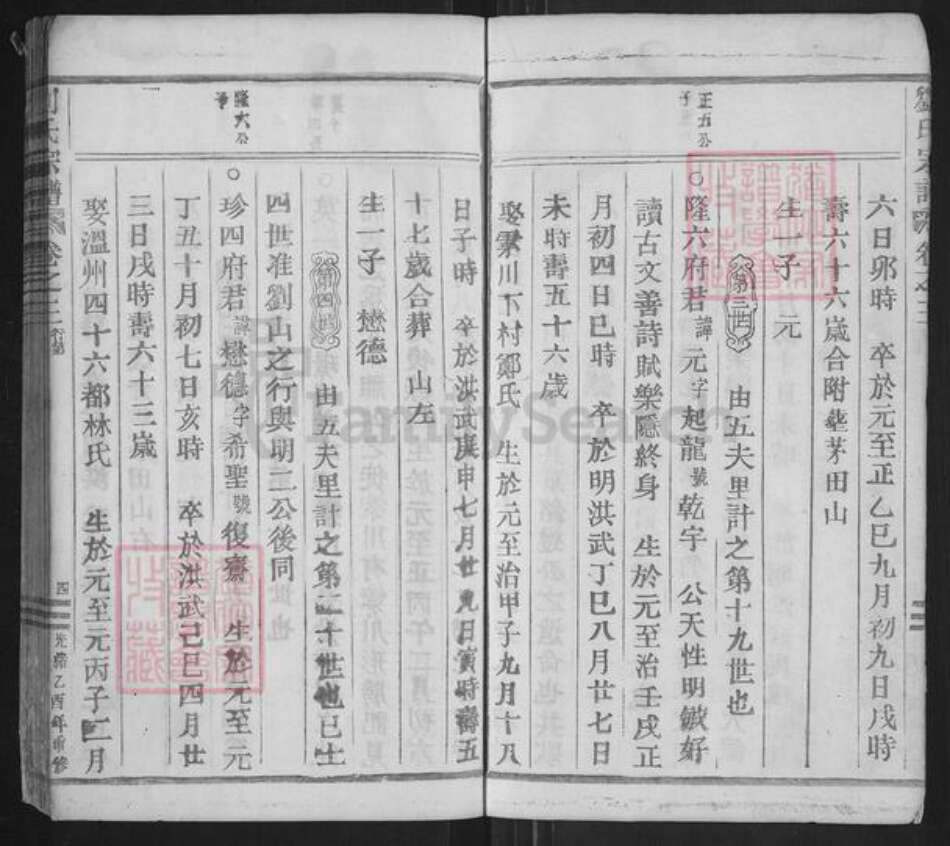 劉氏宗譜 卷之二
正五公
子
六日卯時 卒於元至正乙巳九月初九日戌時
壽六十六歲合附塟茅田山
生一子 元
第三世 由五夫里計之第十九世也
○隆六府君諱元字起龍號乾宇 公天性明敏好
讀古文善詩賦樂隱終身 生於元至治壬戌正
月初四日巳時 卒於明洪武丁巳八月廿七日
未時壽五十六歲
娶霖川下村鄭氏 生於元至治甲子九月十八
日子時 卒於洪武庚申七月廿九日寅時壽五
十七歲合葬 山左
生一子 懋德
第四世 由五夫里計之第二十世也已上
四世准劉山之行與明二公後同
隆六公
子
○珍四府君諱懋德字希聖號復齋 生於元至元
丁丑十月初七日亥時 卒於洪武己巳四月廿
三日戌時壽六十三歲
娶溫州四十六都林氏 生於元至元丙子二月
劉氏宗譜 卷之二
四
光緒乙酉年重修
FamilySearch